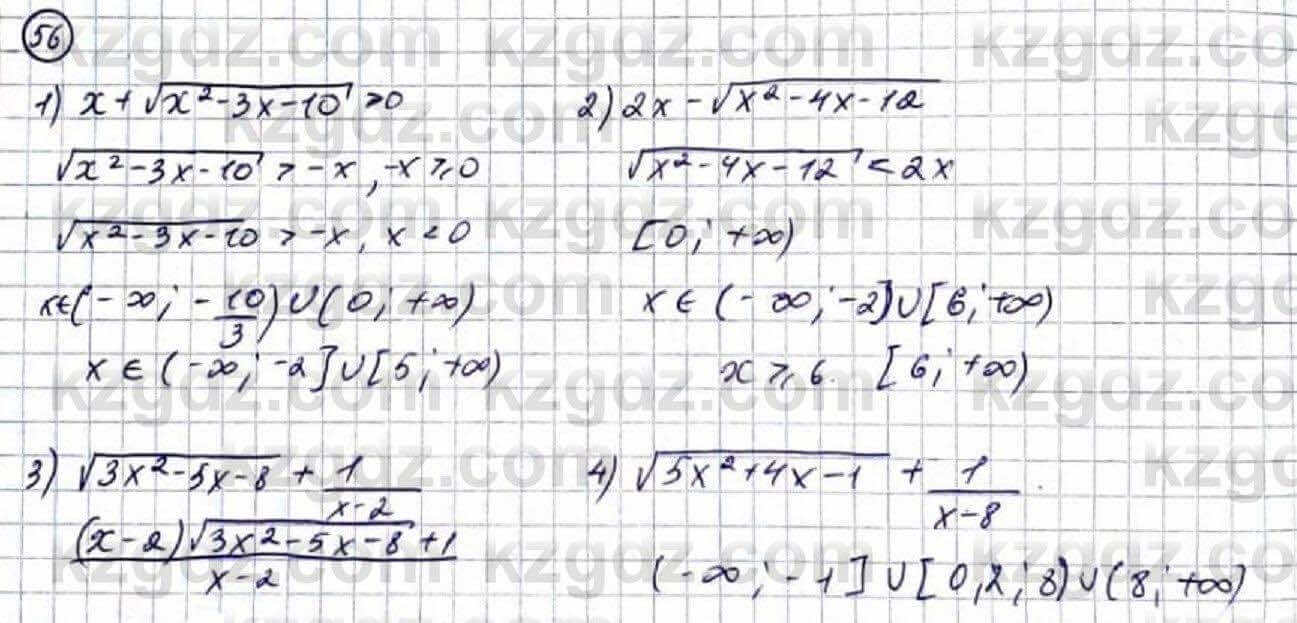 56
1) x + √(x² - 3x - 10) > 0
√(x² - 3x - 10) > -x, -x ⩾ 0
√(x² - 3x - 10) > -x, x < 0
x ∈ (-∞; -10/3) ∪ (0; +∞)
x ∈ (-∞; -2] ∪ [5; +∞)
2) 2x - √(x² - 4x - 12)
√(x² - 4x - 12) < 2x
[0; +∞)
x ∈ (-∞; -2] ∪ [6; +∞)
x ⩾ 6. [6; +∞)
3) √(3x² - 5x - 8) + 1/(x - 2)
((x - 2)√(3x² - 5x - 8) + 1)/(x - 2)
4) √(5x² + 4x - 1) + 1/(x - 8).
(-∞; -1] ∪ [0,2; 8) ∪ (8; +∞)
kzgdz.com